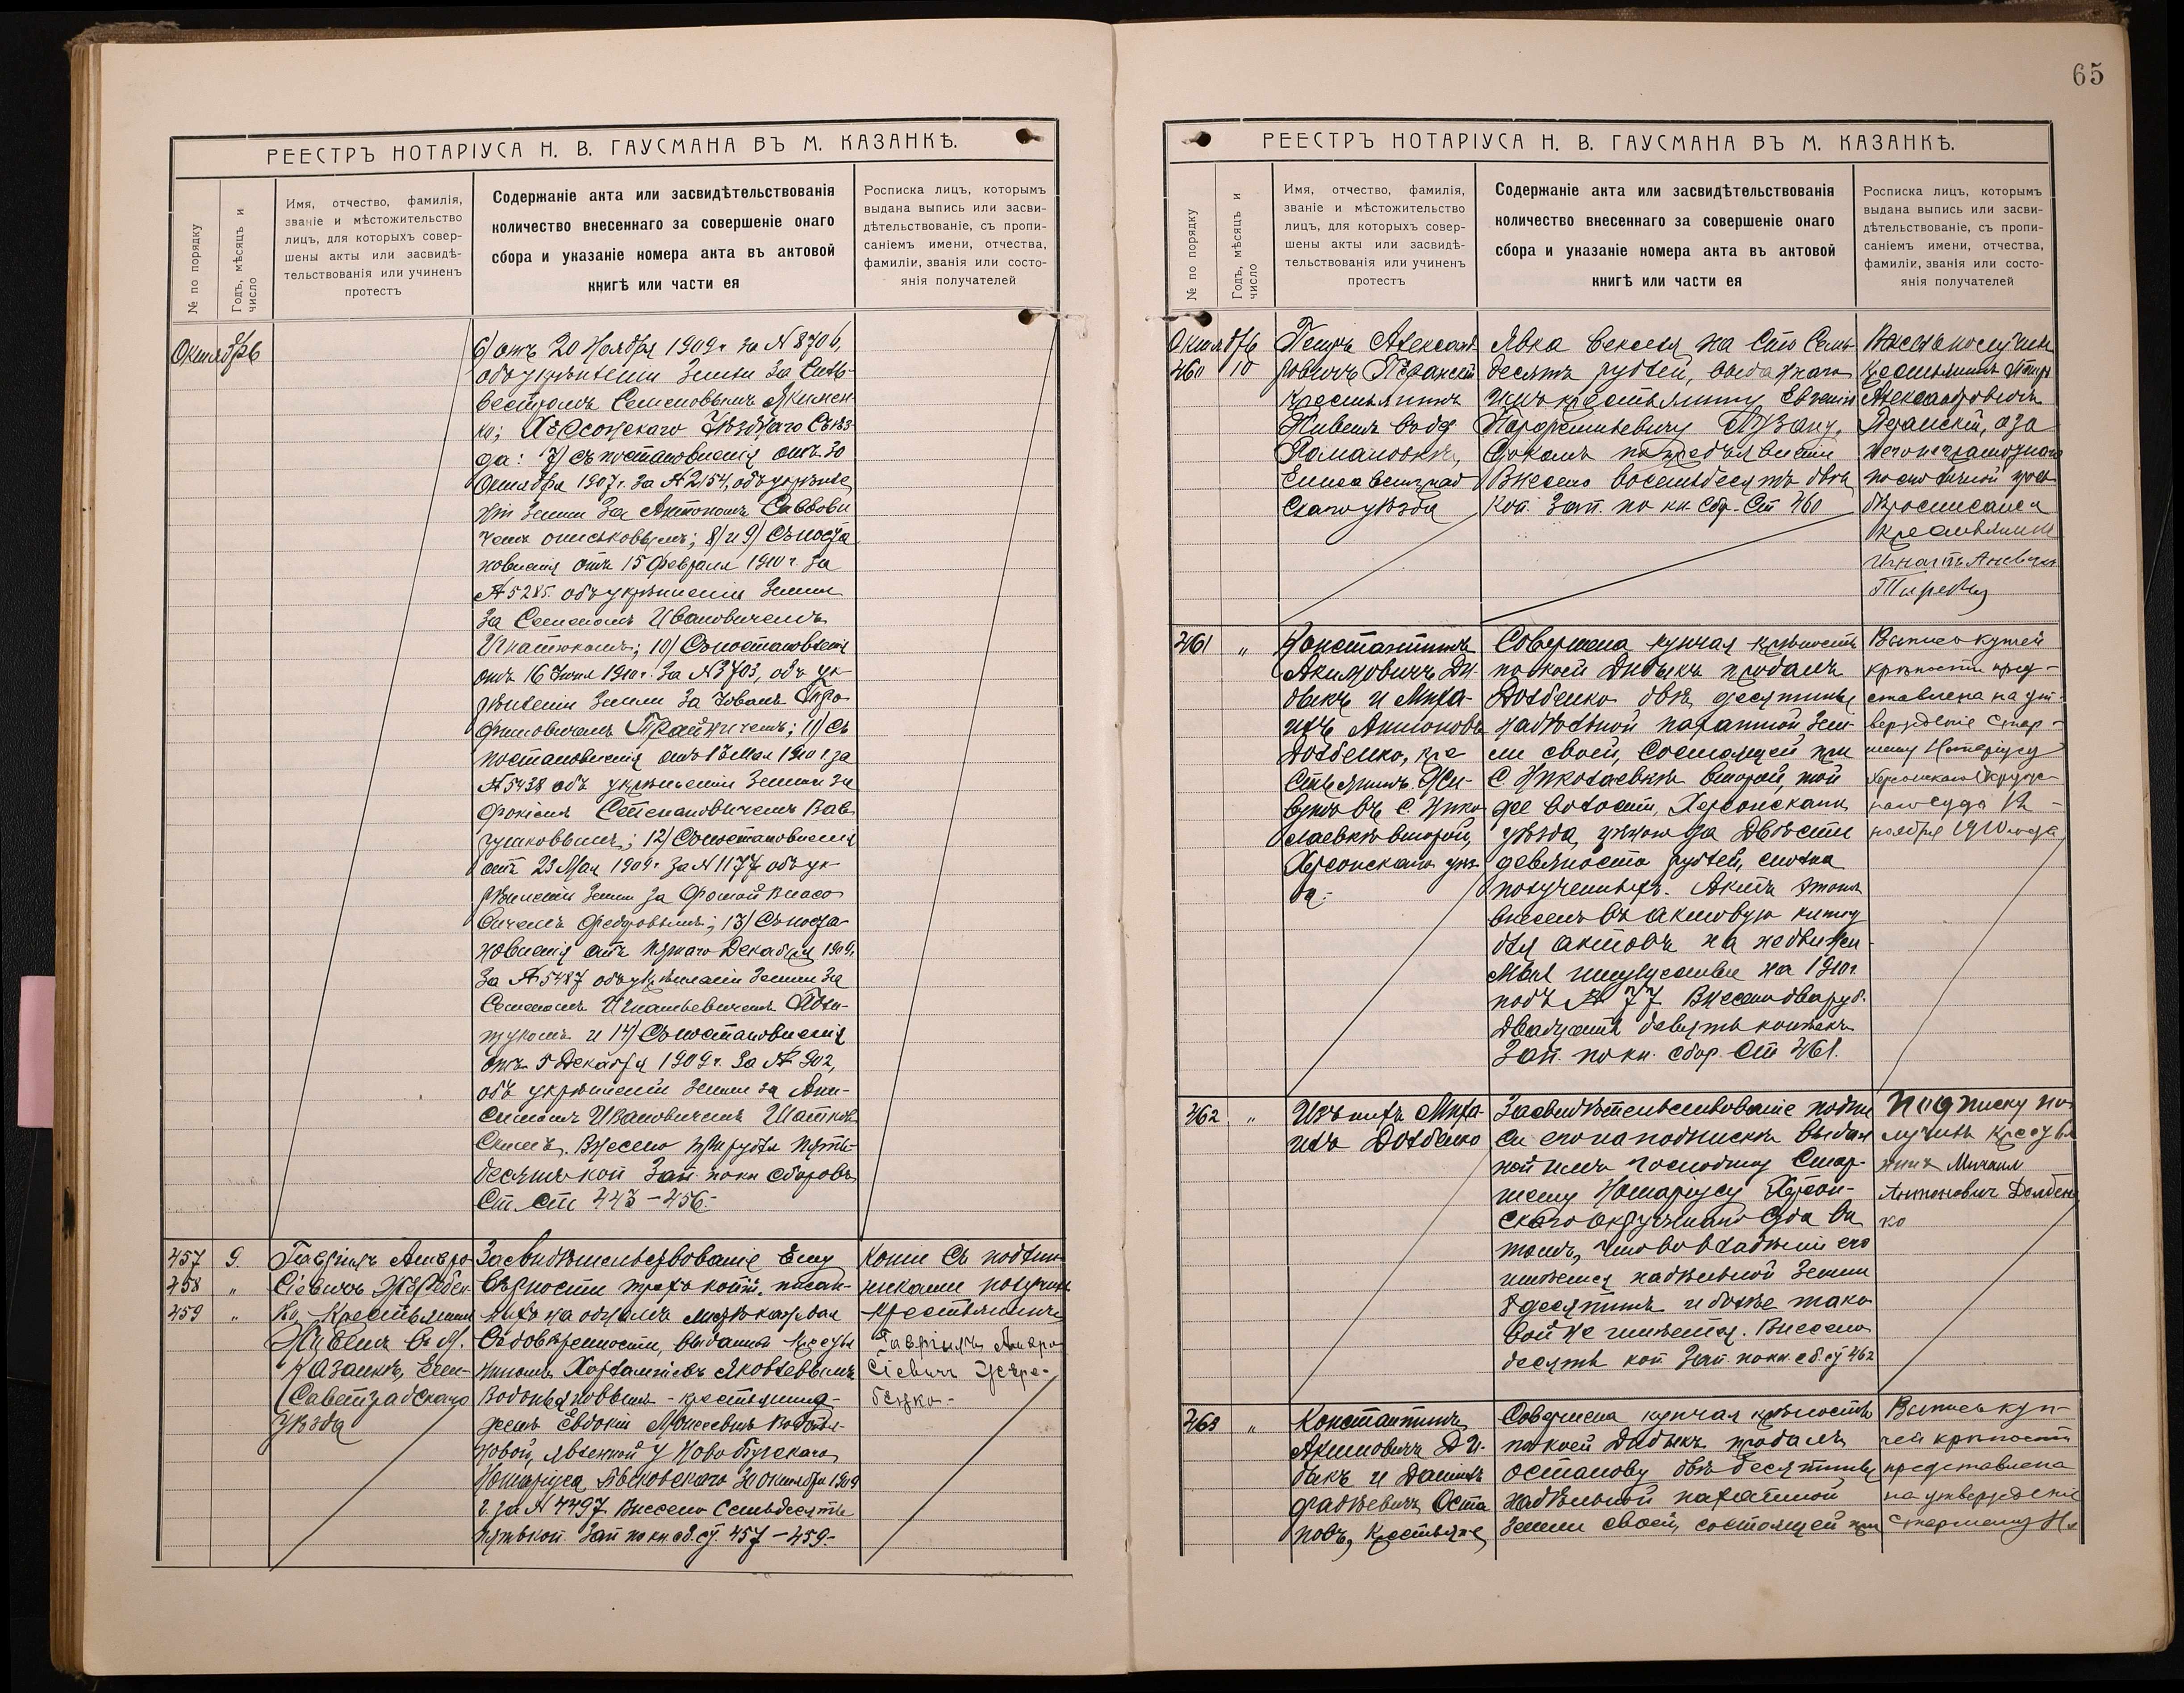 РЕЕСТРЪ НОТАРІУСА Н. В. ГАУСМАНА ВЪ М. КАЗАНКѢ.
№ по порядку
Годъ, мѣсяцъ и число
Имя, отчество, фамилія,
званіе и мѣстожительство
лицъ, для которыхъ совер-
шены акты или засвидѣ-
тельствованія или учиненъ
протестъ
Содержаніе акта или засвидѣтельствованія
количество внесеннаго за совершеніе онаго
сбора и указаніе номера акта въ актовой
книгѣ или части ея
Росписка лицъ, которымъ
выдана выпись или засви-
дѣтельствованіе, съ пропи-
саніемъ имени, отчества,
фамиліи, званія или состо-
янія получателей
Октябрь
6) отъ 20 Ноября 1909 г. за № 8706,
объ укрѣпленіи земли за Силь-
вестромъ Семеновымъ Якимен-
ко; Херсонскаго Уѣзднаго Съѣз-
да: 7) съ постановленія отъ 30
Октября 1907 г. за № 2154, объ укрѣпле
ніи земли за Антономъ Саввови
чемъ; 8) и 9) Съ поста
новленія отъ 15 Февраля 1910 г. за
№ 5285. объ укрѣпленіи земли
за Семеномъ Ивановичемъ
Игнатюкомъ; 10) Съ постановленія
отъ 16 Іюня 1910 г. за № 3703, объ ук-
рѣпленіи земли за Іовомъ Тро-
фимовичемъ; 11) съ
постановленія отъ Мая 1910 г. за
№ 5438 объ укрѣпленіи земли за
Степановичемъ Вав-
; 12) Съ постановленія
отъ 23 Мая 1909 г. за № 1177 объ ук-
рѣпленіи земли за Фомой Власо
вичемъ Федоровымъ; 13) Съ поста-
новленія отъ пятаго Декабря 1909 г.
за № 5487 объ укрѣпленіи земли за
Семеномъ Игнатьевичемъ
и 14) Съ постановленія
отъ 5 Декабря 1909 г. за № 902,
объ укрѣпленіи земли за Ани-
симомъ Ивановичемъ Шатков-
скимъ. Внесено три рубля пять-
десятъ коп Зап. по кн сборовъ
Ст. ст 443 – 456.
457 9. Гавріилъ Амвро
458 " сіевичъ Жеребец-
459 " ко, Крестьянинъ
Живетъ въ М.
Казанкѣ, Ели-
саветградскаго
уѣзда
Засвидѣтельствованіе Ему
вѣрности трехъ копій, писан-
ныхъ на одномъ листѣ каждая
съ довѣренности, выданной кресть
яниномъ Харлампіемъ Яковлевымъ
Водопьяновымъ – крестьянина-
женѣ Евдокіи Моисеевнѣ Водопья-
новой, явленной у Ново-Бугскаго
Нотаріуса 30 октября 1909
г. за № 4497. Внесено Семьдесятъ
пять коп. Зап по кн. сб. ст. 457 – 459.
Копіи съ подлин-
никами получилъ
крестьянинъ
Гавріилъ Амвро
сіевичъ Жере-
бецко.
65
РЕЕСТРЪ НОТАРІУСА Н. В. ГАУСМАНА ВЪ М. КАЗАНКѢ.
№ по порядку
Годъ, мѣсяцъ и число
Имя, отчество, фамилія,
званіе и мѣстожительство
лицъ, для которыхъ совер-
шены акты или засвидѣ-
тельствованія или учиненъ
протестъ
Содержаніе акта или засвидѣтельствованія
количество внесеннаго за совершеніе онаго
сбора и указаніе номера акта въ актовой
книгѣ или части ея
Росписка лицъ, которымъ
выдана выпись или засви-
дѣтельствованіе, съ пропи-
саніемъ имени, отчества,
фамиліи, званія или состо-
янія получателей
Октябрь
460 10
Петръ Александ
ровичъ
крестьянинъ
Живетъ въ д
Романовкѣ,
Елисаветград
скаго уѣзда
Явка векселя на Сто Семь-
десятъ рублей, выданнаго
имъ крестьянину Евгенію
срокомъ по предъявленіи
Внесено восемьдесятъ двѣ
коп. Зап. по кн. сбр. Ст 460
Вексель получилъ
Крестьянинъ Петръ
Александровичъ
а за
него неграмотнаго
по его личной прось
бѣ росписался
крестьянинъ
461 "
Константинъ
Акимовичъ Ди-
дыкъ и Миха-
илъ Антоновъ
Долбенко, кре
стьянинъ. Жи-
вутъ въ с. Нико
лаевкѣ второй,
Херсонскаго уѣз-
да.
Совершена купчая крѣпость
по коей Дидыкъ продалъ
Долбенко двѣ десятины
надѣльной пахатной зем-
ли своей, состоящей при
с. Николаевкѣ второй, той
же волости, Херсонскаго
уѣзда, цѣною за Двѣсти
девяносто рублей, сполна
полученныхъ. Актъ этотъ
внесенъ въ актовую книгу
для актовъ на недвижи-
мыя имущества на 1910 г.
подъ № 77. Внесено два руб.
двадцать девять копѣекъ
Зап. по кн. сбор. Ст 461.
Выпись купчей
крѣпости пред-
ставлена на ут-
вержденіе Стар-
шему Нотаріусу
Херсонскаго Окруж-
наго суда 12 –
ноября 1910 года
462 "
Изъ нихъ Миха
илъ Долбенко
Засвидѣтельствованіе подпи
си его на подпискѣ выдан
ной имъ господину Стар-
шему Нотаріусу Херсон-
скаго Окружнаго Суда въ
томъ, что во владѣніи его
имѣется надѣльной земли
8 десятинъ и болѣе тако
вой не имѣется. Внесено
десять коп. Зап. по кн. сб. ст 462
Подписку по
лучилъ крестья
нинъ Михаил
Антонович Долбен
ко
463 "
Константинъ
Акимовичъ Ди-
дыкъ и Даніилъ
Фадѣевичъ Оста
повъ, крестьяне
Совершена купчая крѣпость
по коей Дидыкъ продалъ
Остапову двѣ десятины
надѣльной пахатной
земли своей, состоящей при
Выпись куп-
чей крѣпости
представлена
на утвержденіе
Старшему Но